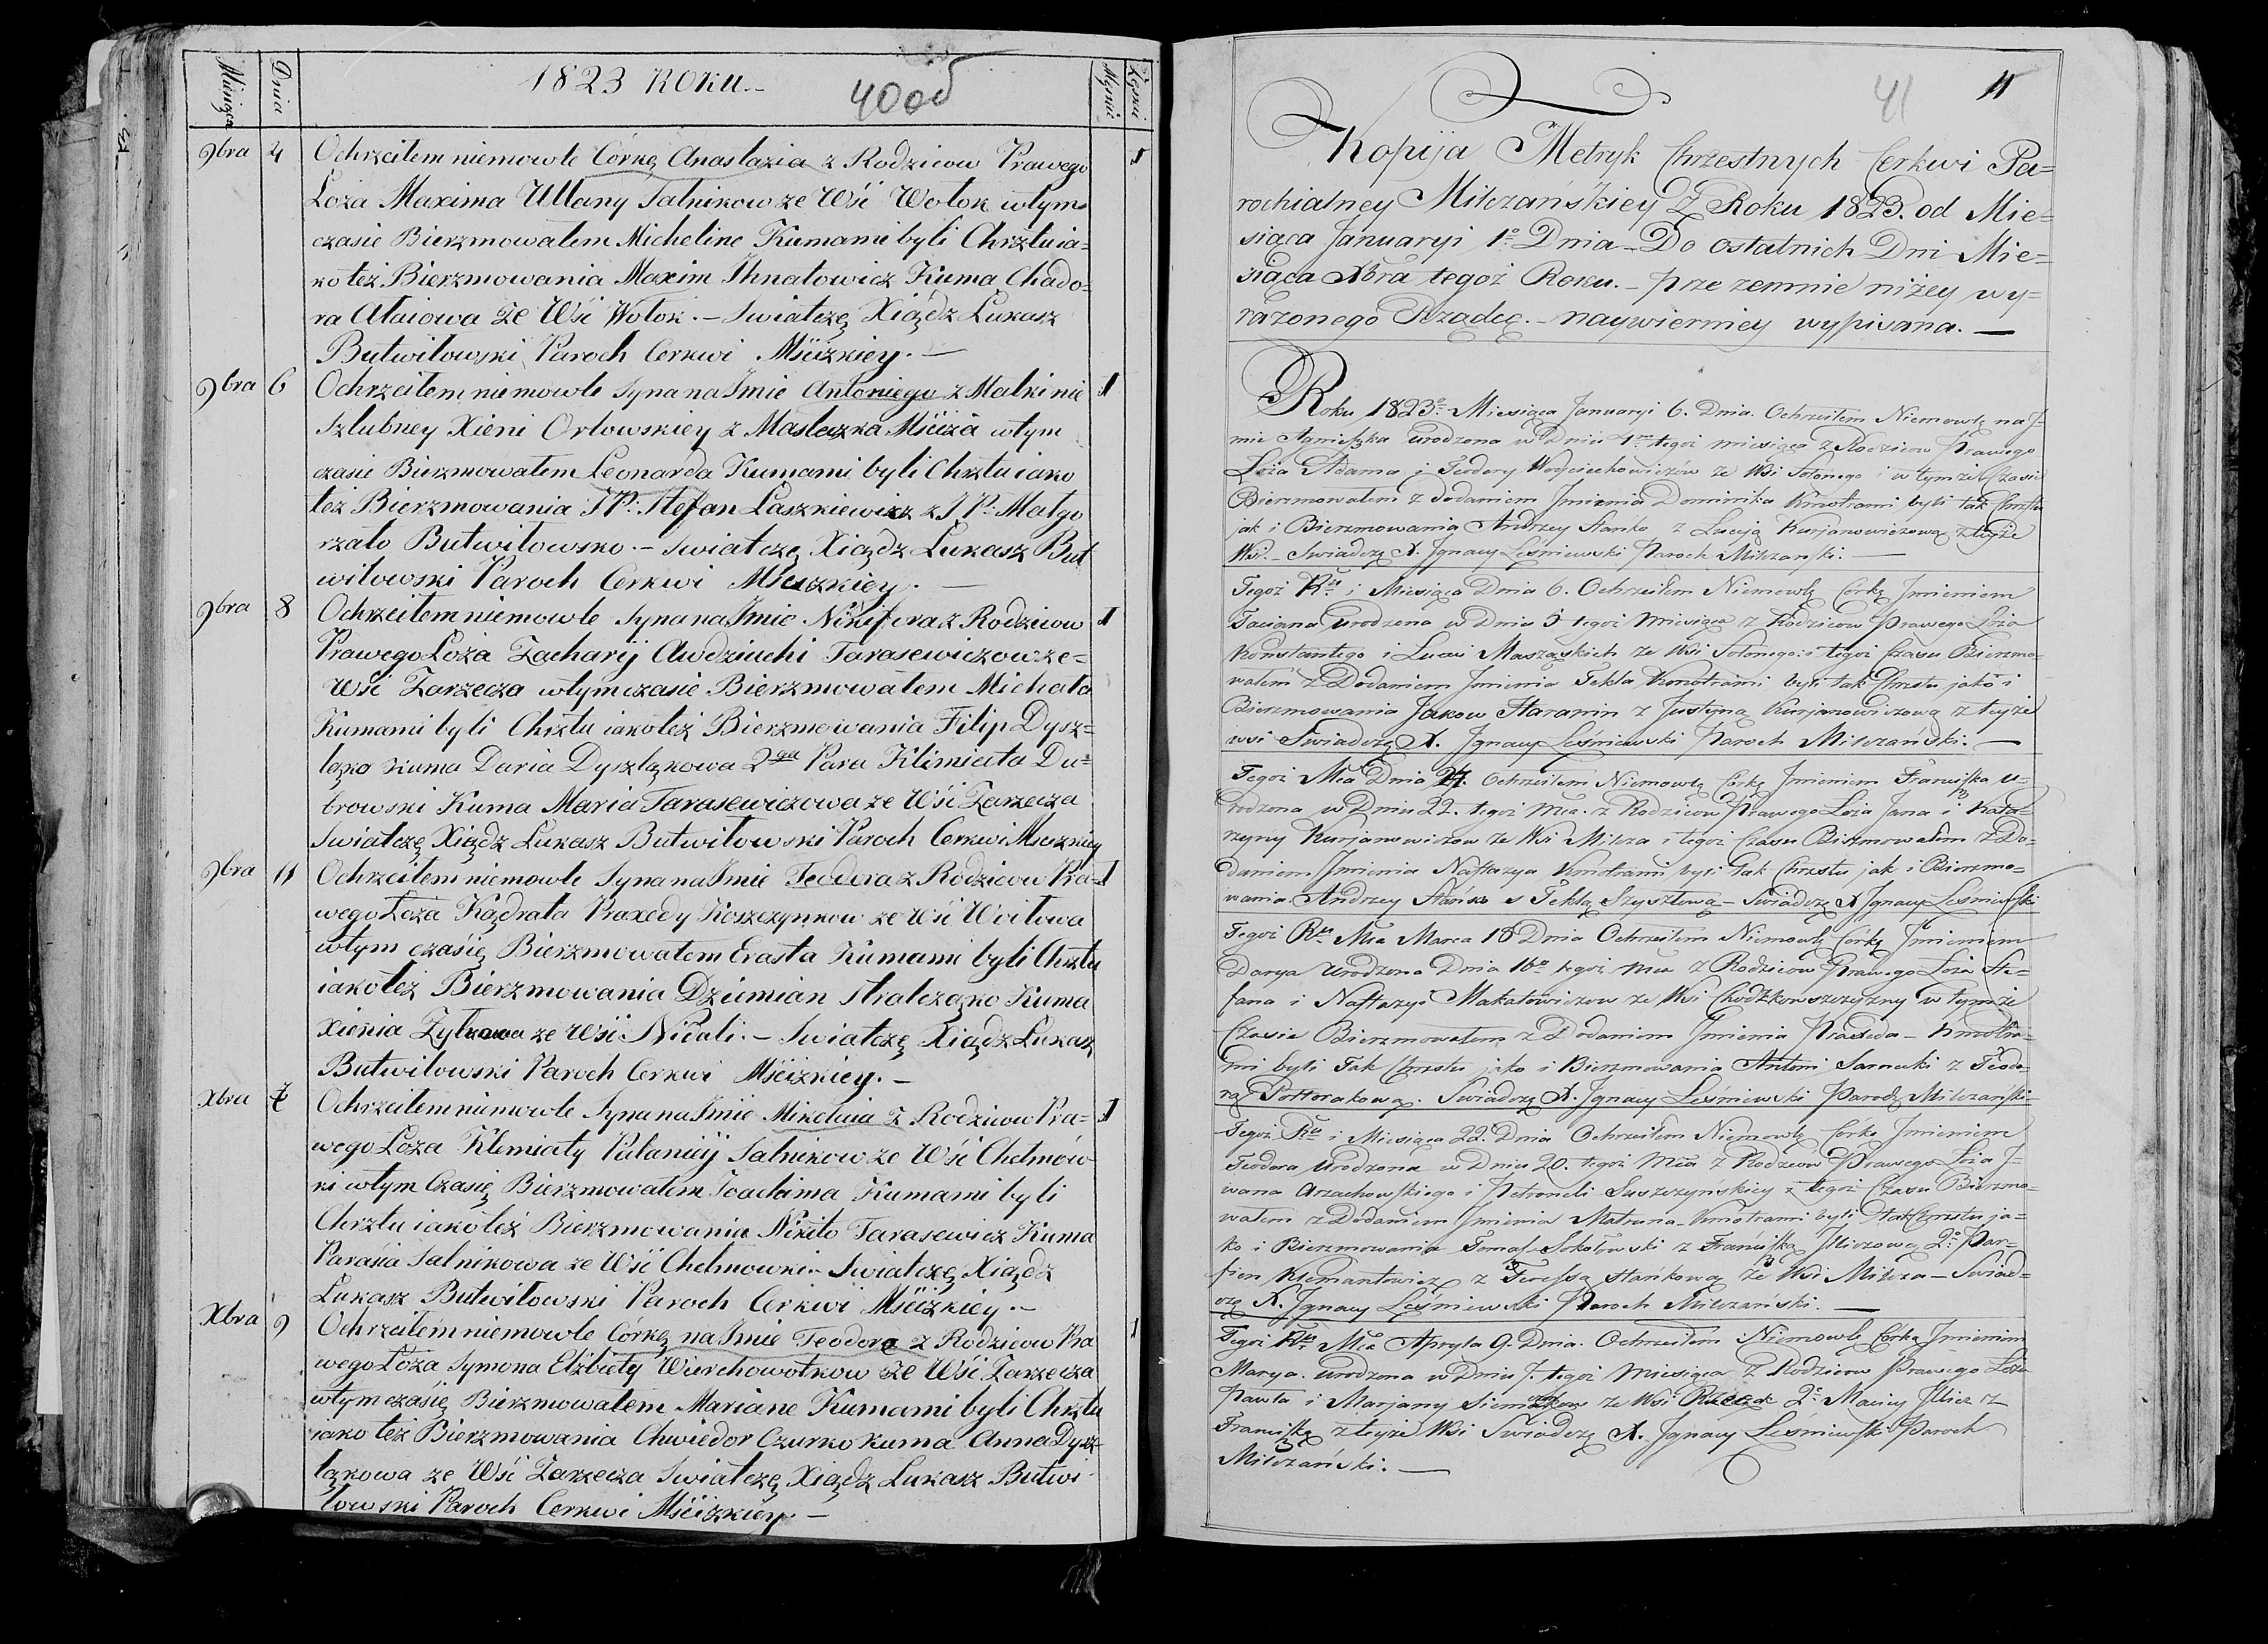 Miesiąca
Dnia
1823 ROKu.-
40 об
Męzkie
Żęskie
9bra 4 Ochrzciłem niemowle Córkę Anastazia z Rodzicow Prawego 1
Łoża Maxima Ullany Salnikow ze Wśi Wołok wtym
czasie Bierzmowałem Micheline Kumami byli Chrztu ia=
ko też Bierzmowania Maxim Ihnatowicz Kuma Chado=
ra Ałaiowa ze Wśi Wołok.- Swiatczę Xiądz Łukasz
Butwiłowski Paroch Cerkwi Mściżkiey.-
9bra 6 Ochrzciłem niemowle Syna na Imie Antoniego z Matki nie 1
Szlubney Xieni Orłowskiey z Miasteczka Mściża wtym
czasie Bierzmowałem Leonarda Kumami byli Chrztu iako
też Bierzmowania JP: Stefan Laszkiewicz z JP: Małgo
rzato Butwiłowsko.- Swiatczę Xiądz Łukasz But
wiłowski Paroch Cerkwi Mściżkiey.-
9bra 8 Ochrzciłem niemowle Syna na Imie Nikifora z Rodzicow 1
Prawego Łoża Zacharij Awdziuchi Tarasewiczow ze=
Wśi Zarzecza wtym czasie Bierzmowałem Michała
Kumami byli Chrztu iakoteż Bierzmowania Filip Dysz=
lązko Kuma Daria Dyszlązkowa 2ga Para Klimiata Du=
browski Kuma Maria Tarasewiczowa ze Wśi Zarzecza
Swiatczę Xiądz Łukasz Butwiłowski Paroch Cerkwi Mściżkiey
9bra 11 Ochrzciłem niemowle Syna na Imie Teodora z Rodzicow Pra= 1
wego Łoża Kądrata Praxedy Koszczynkow ze Wśi Woiłowa
wtym czasię Bierzmowałem Erasta Kumami byli Chrztu
iakoteż Bierzmowania Dziemian Stralczązko Kuma
Xienia Zylkowa ze Wśi Nićali.- Swiatczę Xiądz Łukasz
Butwiłowski Paroch Cerkwi Mściżkiey.-
Xbra Ochrzciłem niemowle Syna na Imie Mikołaia z Rodzicow Pra= 1
wego Łoża Klemiaty Pałanieij Salnikow ze Wśi Chełmow
ki wtym Czasię Bierzmowałem Ioachima Kumami byli
Chrztu iakoteż Bierzmowania Nikito Tarasewicz Kuma
Paraśia Salnikowa ze Wśi Chełmowki.- Swiatczę Xiądz
Łukasz Butwiłowski Paroch Cerkwi Mściżkiey.-
Xbra 9 Ochrzciłem niemowle Córkę na Imie Teodora z Rodzicow Pra 1
wego Łoża Symona Elżbiety Wierchowołkow ze Wśi Zarzecza
wtym czasię Bierzmowałem Mariane Kumami byli Chrztu
iako też Bierzmowania Chwiedor Czurko Kuma Anna Dysz=
lązkowa ze Wśi Zarzecza Swiatczę Xiądz Łukasz Butwi
łowski Paroch Cerkwi Mściżkiey.-
41
Kopija Metryk Chrzestnych Cerkwi Pa=
rochialney Milczańskiey Z Roku 1823. od Mie=
siąca Januaryi 1o Dnia Do ostatnich Dni Mie=
siąca Xbra tegoż Roku.- prze zemnie niżey wy=
rażonego Rządcę.- naywierniey wypisana.-
Roku 1823o Miesiąca Januaryi 6. Dnia. Ochrzciłem Niemowlę na J=
mie Agnieszka urodzona w Dniu 4m tegoż miesiąca z Rodzicow Prawego
Łoża Adama i Teodory Woyciechowiczów ze Wsi Sołonego i w tymże Czasie
Bierzmowałem z dodaniem Jmienia Dominika Kmotrami byli tak Chrztu
jak i Bierzmowania Andrzey Stanko z Łucyją Kurjanowiczową z teyże
Wsi.- Swiadczę X. Jgnacy Leśniewski Paroch Milczański.-
Tegoż Rku i Miesiąca Dnia 6. Ochrzciłem Niemowlę Córkę Jmieniem
Taciana urodzona w Dniu 5 tegoż Miesiąca z Rodzicow Prawego Łoża
Konstantego i Łucii Maszaskich ze Wsi Sołonego: i tegoż Czasu Bierzmo=
wałem z Dodaniem Jmienia Tekla Kmotrami byli tak Chrztu jako i
Bierzmowania Jakow Staranin z Justyną Kurjanowiczową z teyże
wsi Swiadczę X. Jgnacy Leśniewski Paroch Milczański.-
Tegoż Mca Dnia 24. Ochrzciłem Niemowlę Córkę Jmieniem Franciszka u=
rodzona w Dniu 22. tegoż Mca. z Rodzicow Prawego Łoża Jana i Kata=
rzyny Kurjanowiczow ze Wsi Milcza i tegoż Czasu Bierzmowałem z Do=
daniem Jmienia Nastazya Kmotrami byli tak Chrztu jak i Bierzmo=
wania Andrzey Stańko z Teklą Szyszłową - Swiadczę X Jgnacy Leśniewski
Tegoż Rku Mca Marca 18 Dnia Ochrzciłem Niemowlę Córkę Jmieniem
Darya Urodzona Dnia 16o tegoż Mca z Rodzicow Prawego Łoża Ste=
fana i Nastazyi Makatowiczow ze Wsi Chodzkowszczyzny w tymże
Czasie Bierzmowałem z Dodaniem Jmienia Praxeda - Kmotra=
mi byli Tak Chrztu jako i Bierzmowania Antoni Sarnecki z Teodo=
rą Półtorakową. Swiadczę X. Jgnacy Leśniewski Paroch Milczański-
Tegoż Rku i Miesiąca 22. Dnia Ochrzciłem Niemowlę Córkę Jmieniem
Teodora Urodzona w Dniu 20. tegoż Mca z Rodzicow Prawego Łoża J=
wana Arzachowskiego i Petroneli Suszczyńskiey i tegoż Czasu Bierzmo=
wałem z Dodaniem Jmienia Matruna Kmotrami byli tak Chrztu ja=
ko i Bierzmowania Tomasz Sokołowski z Franciszką Jliczową 2o Par=
fien Klemantowicz z Teressą Stańkową ze Wsi Milcza - Swiad=
czę X. Jgnacy Leśniewski Paroch Milczański.-
Tegoż Rku Mca Apryla 9. Dnia. Ochrzciłem Niemowlę Córkę Jmieniem
Marya. urodzona w Dniu 7. tegoż Miesiąca z Rodzicow Prawego Łoża
Pawła i Marjanny ze Wsi 2o Maciey Jlicz z
Franciszką z teyże Wsi Swiadczę X. Jgnacy Leśniewski Paroch
Milczański.-